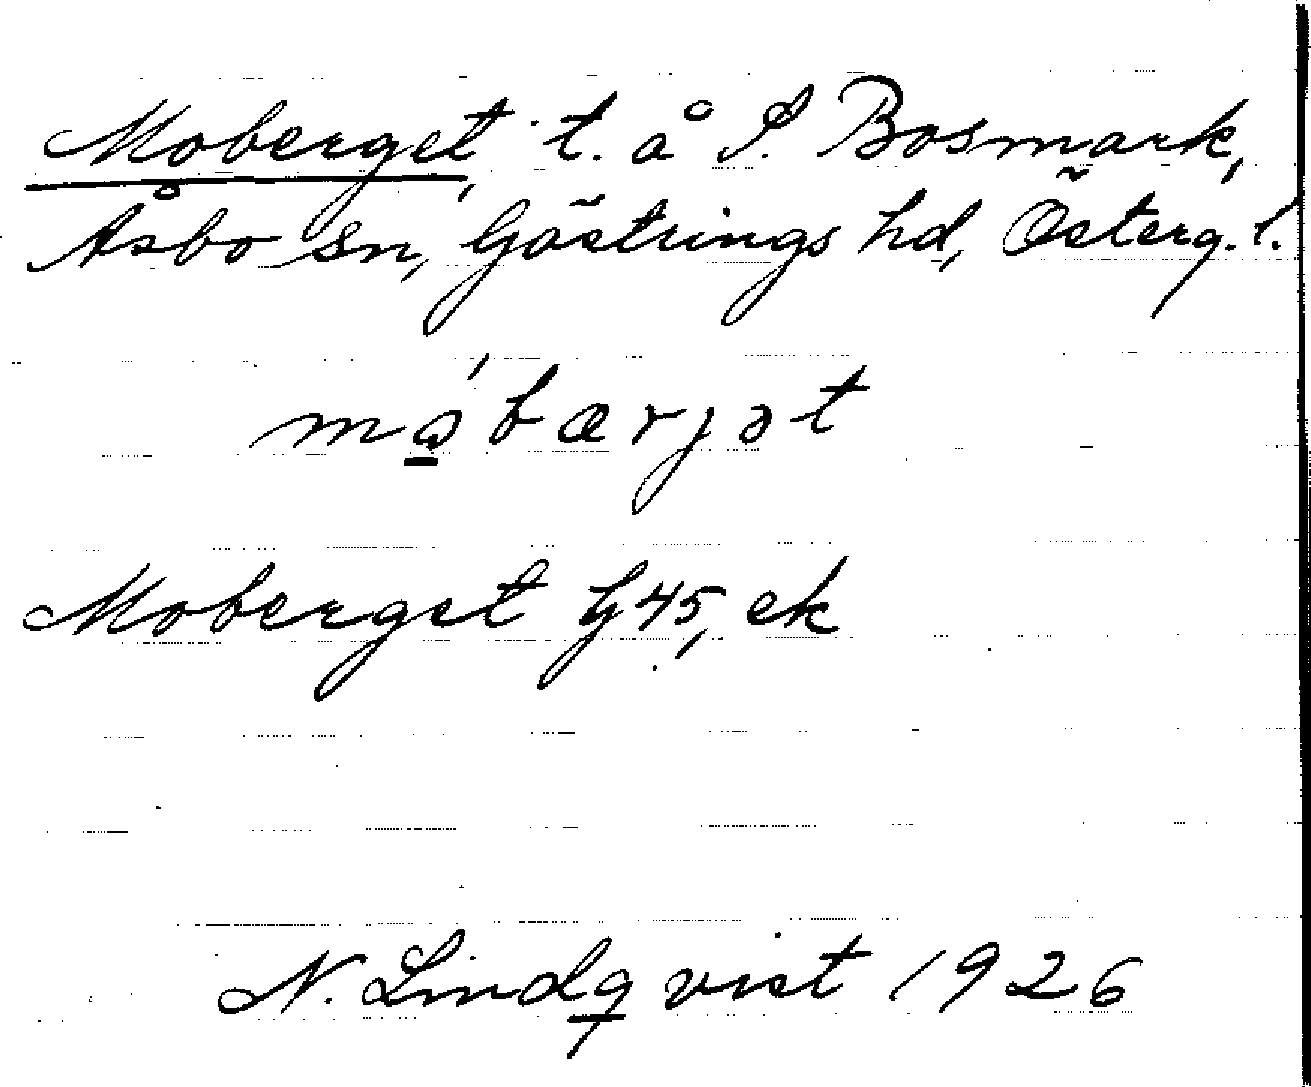 Moberget, t. å S. Bosmark,
Åsbo sn, Göstrings hd, Österg. l.
mo̱ ́bærjət
Moberget G 45, ek
N. Lindqvist 1926